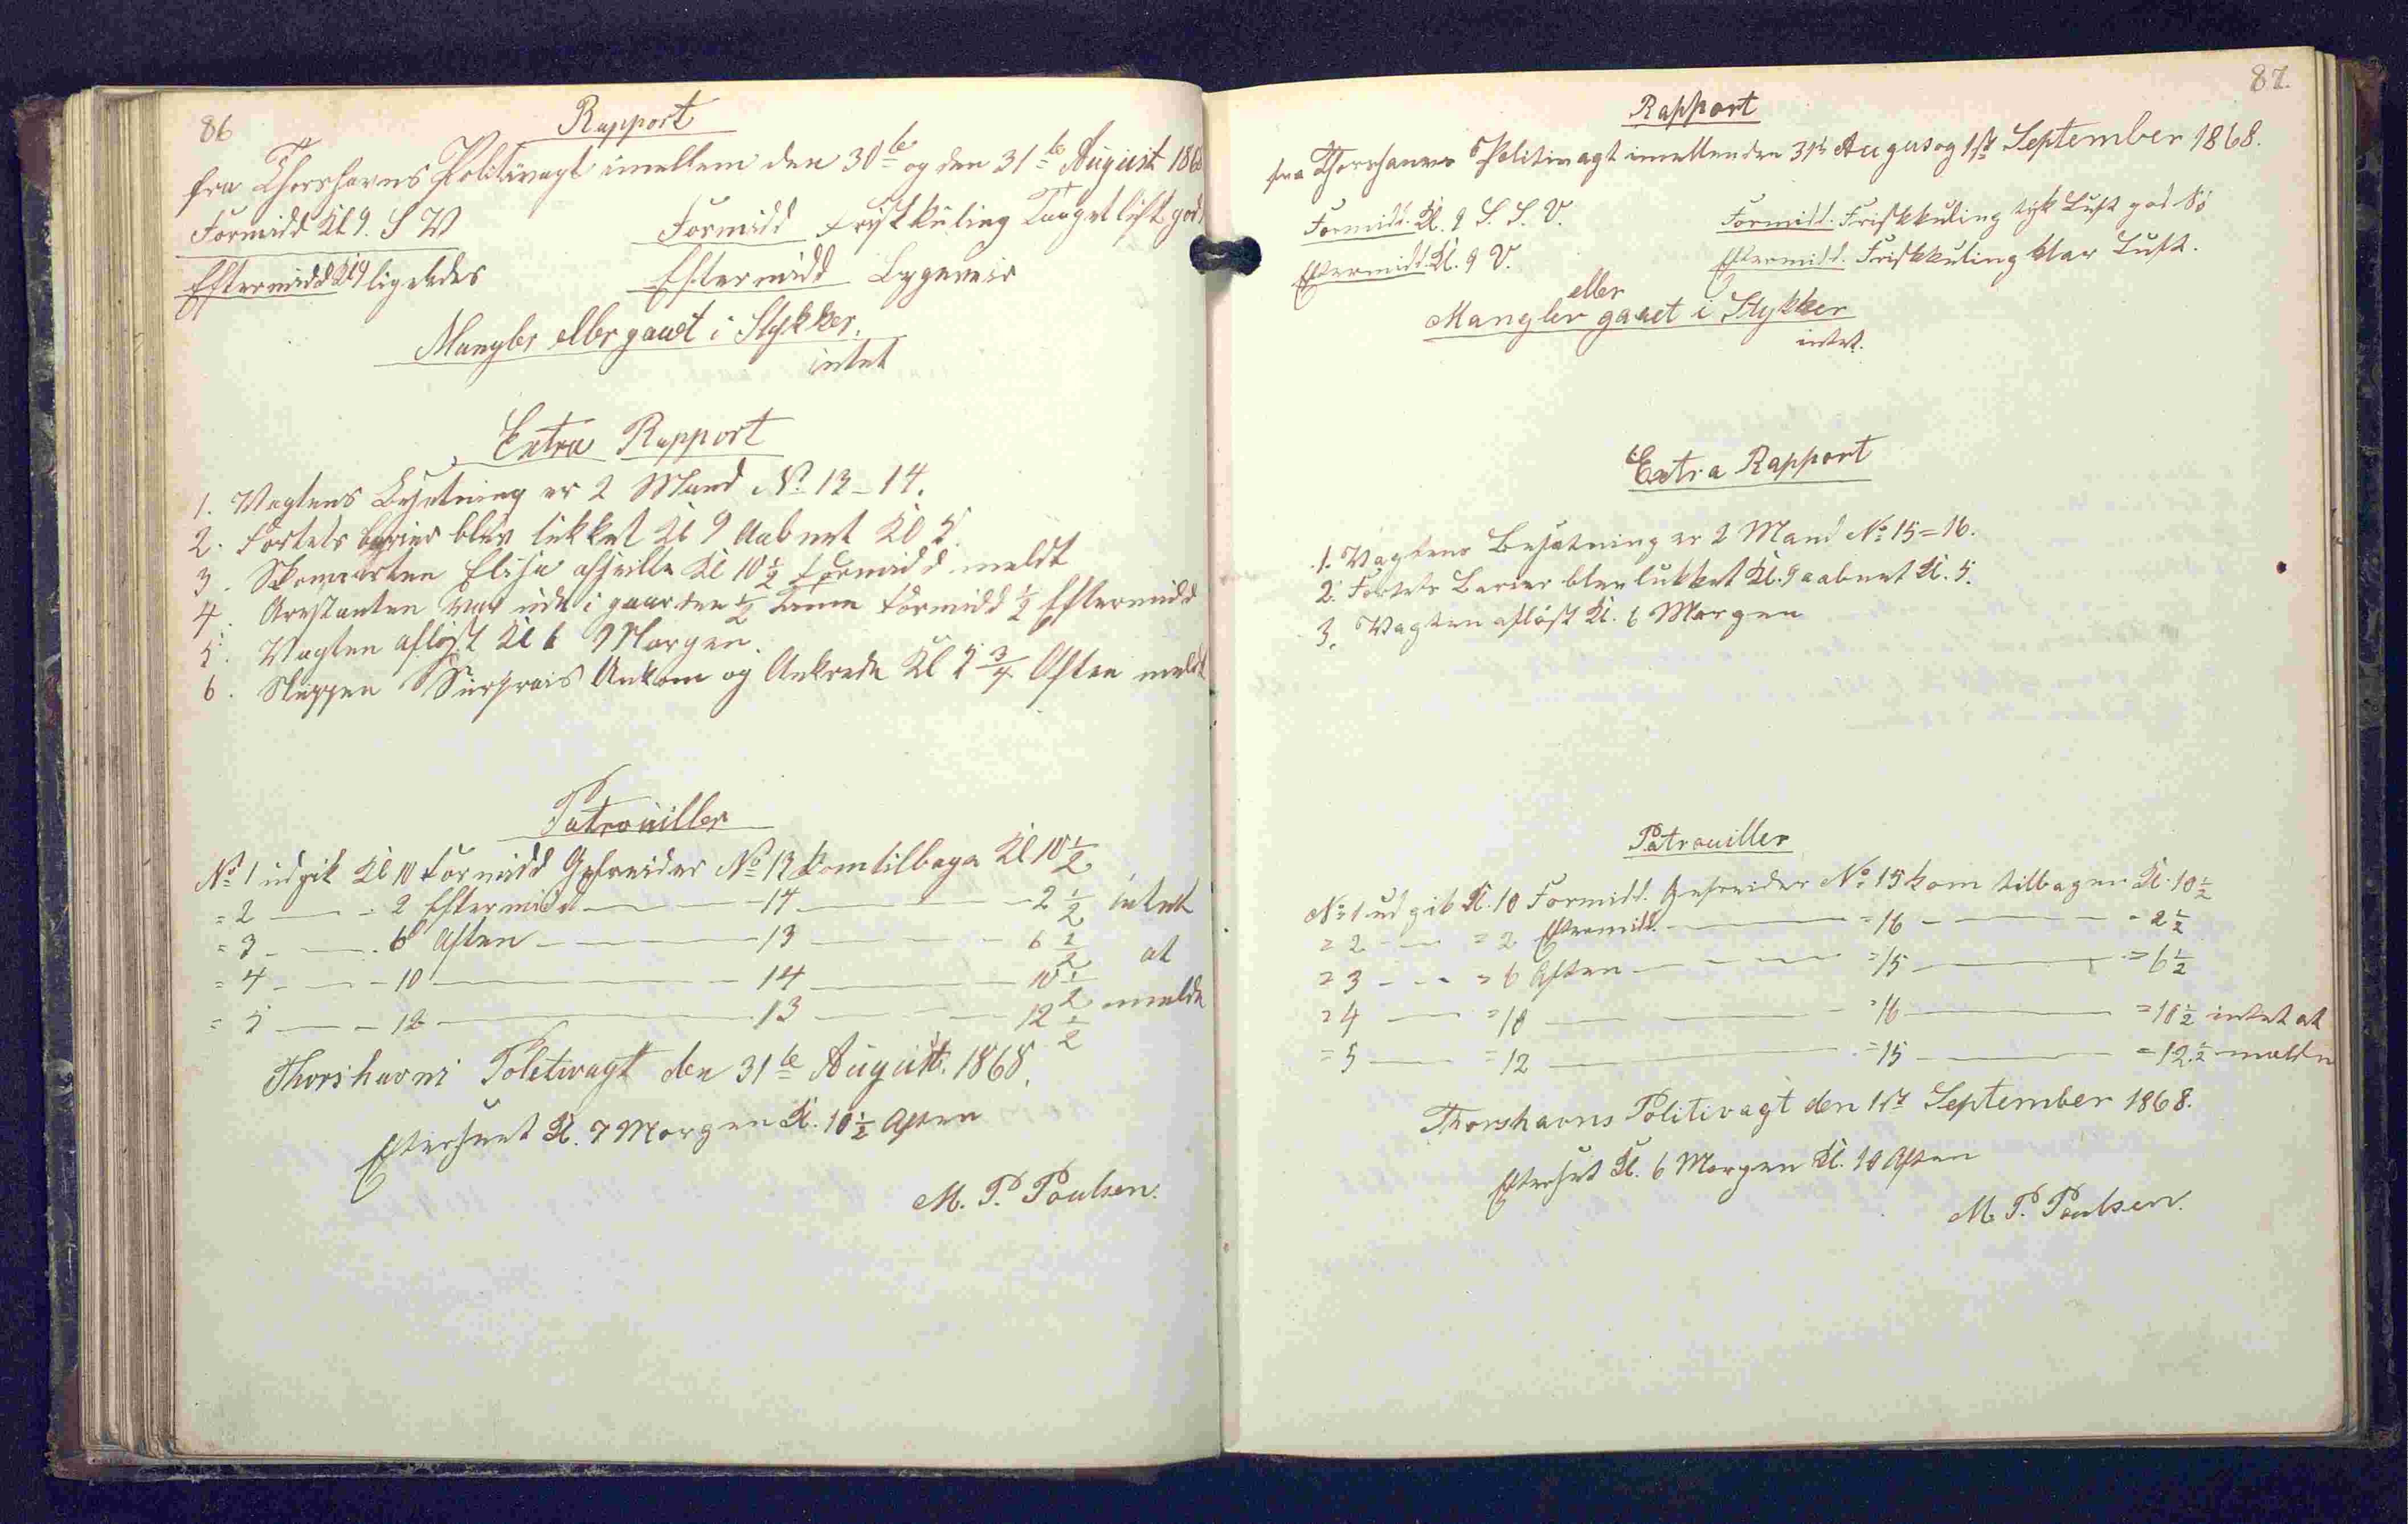 86
Rapport
fra Thorshavns Politivagt imellem den 30te og den 31te August 186
Formidd Kl 9. S V Formidd Friskkuling Taaget luft god
Eftermidd Kl 9 ligeledes Eftermidd Bygeveir
Mangler eller gaaet i Stykker.
intet
Extra Rapport
1. Vagtens Besetning er 2 Mand No 13-14.
2. Fortets barier blev lukket Kl 9 Aabnet Kl 5.
3. Skonnerten Elisa afseilte Kl 10 1/2 Formidd meldt
4. Arestanten var ude i gaarden 1/2 Time Formidd 1/2 Eftermidd
5. Vagten afløst Kl 6 Morgen.
6. Sluppen Surprais Ankom og Ankrede Kl 5 3/4 Aften meldt
Patrouiller
No 1 udgik Kl 10 Formidd Gefreider No 13 kom tilbage Kl 10 1/2
= 2 — - 2 Eftermidd — 14 — 2 1/2 intet
= 3 — - 6 Aften — 13 — 6 1/2 at
= 4 — - 10 — 14 — 10 1/2
= 5 — - 12 — 13 — 12 1/2 melde
Thorshavns Poletivagt den 31te August. 1868.
Efterseet Kl. 7 Morgen Kl. 10 1/2 Aften
M. P. Poulsen.
87.
Rapport
fra Thorshavns Politivagt imellem den 31te Augus og 1ste September 1868.
Formidd. Kl. 9 S. S. V. Formidd. Friskkuling tyk Luft god Sö
Eftermidd. Kl. 9 V. Eftermidd. Friskkuling klar Luft.
eller
Mangler gaaet i Stykker
intet.
Extra Rapport
1. Vagtens Besætning er 2 Mand No 15=16.
2. Fortets Barier blev lukket Kl. 9 aabnet Kl. 5.
3. Vagten aflöst Kl. 6 Morgen
Patrouiller
No 1 udgik Kl. 10 Formidd. Gefreider No 15 kom tilbagen Kl. 10 1/2
= 2 — = 2 Eftermidd. — = 16 — = 2 1/2
= 3 — = 6 Aften — = 15 — = 6 1/2
= 4 — = 10 — = 16 — = 10 1/2 intet at
= 5 — = 12 — = 15 — = 12 1/2 melde
Thorshavns Politivagt den 1ste September 1868.
Efterset Kl. 6 Morgen Kl. 10 Aften
M. P. Poulsen.